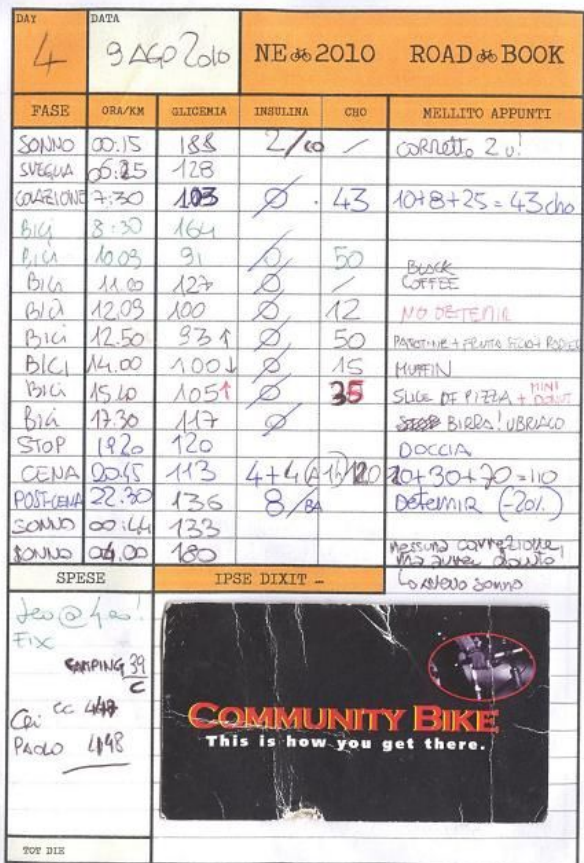 DAY
4
DATA
9 AGO 2010
NE 2010 ROAD BOOK
FASE ORA/KM GLICEMIA INSULINA CHO MELLITO APPUNTI
SONNO 00.15 188 2/ / CORRETTO 2 U!
SVEGLIA 06:25 128
COLAZIONE 7:30 103 Ø 43 10+8+25 = 43 cho
BICI 8:30 164
BICI 10.09 91 Ø 50
BICI 11.00 127 Ø / BLACK COFFEE
BICI 12.09 100 Ø 12 NO DETEMIR
BICI 12.50 93↑ Ø 50
BICI 14.00 100↓ Ø 15 MUFFIN
BICI 15.40 105↑ Ø 35 SLICE OF PIZZA + MINI DONUT
BICI 17.30 117 Ø BIRRA! UBRIACO
STOP 19.20 120 DOCCIA
CENA 20.45 113 4+4 120 +30+70=110
POST-CENA 22.30 136 8/BA Detemir (-20%)
SONNO 00:44 133
SONNO 04.00 180 nessuna correzione,
ma avrei dovuto
SPESE IPSE DIXIT … sonno
FIX
CAMPING 39
C
CC
PAOLO
COMMUNITY BIKE
This is how you get there.
TOT DIE